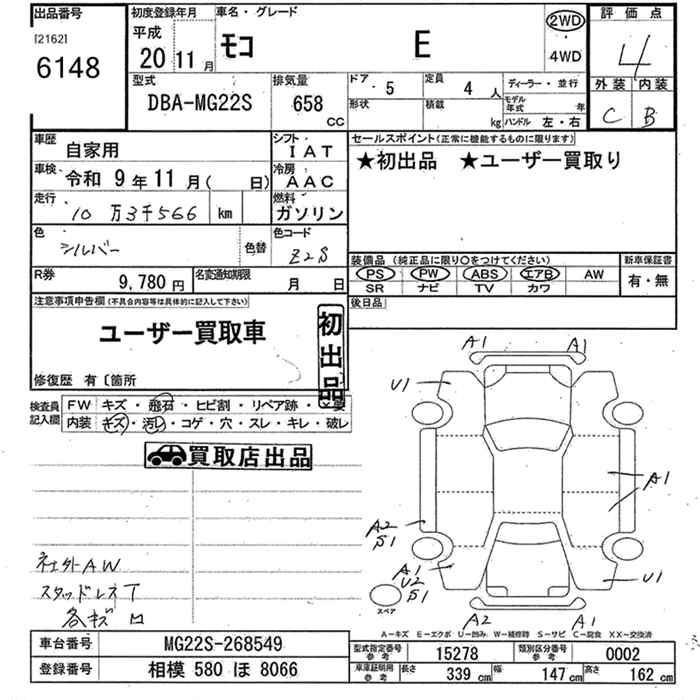 出品番号 初度登録年月 車名・グレード 評価点
[2162] 平成 モコ E 2WD 4
6148 20 11月 4WD
型式 排気量 ドア 5 定員 4人 ディーラー・並行 外装 内装
DBA-MG22S 658 CC 形状 積載 kg モデル年式 年 C B
ハンドル 左・右
車歴 自家用 シフト IAT セールスポイント(正常に機能するものに限ります)
車検 令和 9年 11月( 日) 冷房 AAC ★初出品 ★ユーザー買取り
走行 10万3千566 km 燃料 ガソリン
色 シルバー 色替 色コード Z2S
装備品(純正品に限り○をつけてください) 新車保証書
R券 9,780円 名変通知期限 月 日 PS PW ABS エアB AW 有・無
SR ナビ TV カワ
注意事項申告欄(不具合内容等は具体的に記入して下さい) 後日品
ユーザー買取車 初出品
修復歴 有〔箇所
検査員記入欄 FW キズ・飛石・ヒビ割・リペア跡・×要
内装 キズ・汚レ・コゲ・穴・スレ・キレ・破レ
買取店出品
A1 A1
U1
A1
A2
S1
社外AW
スタッドレスT
各キズ凹
A1
U2
S1
U1
スペア
A2 A1
A-キズ E-エクボ U-凹み W-補修跡 S-サビ C-腐食 XX-交換済
車台番号 MG22S-268549 型式指定番号 参考 15278 類別区分番号 参考 0002
登録番号 相模 580 ほ 8066 車庫証明用 参考 長さ 339cm 幅 147cm 高さ 162cm